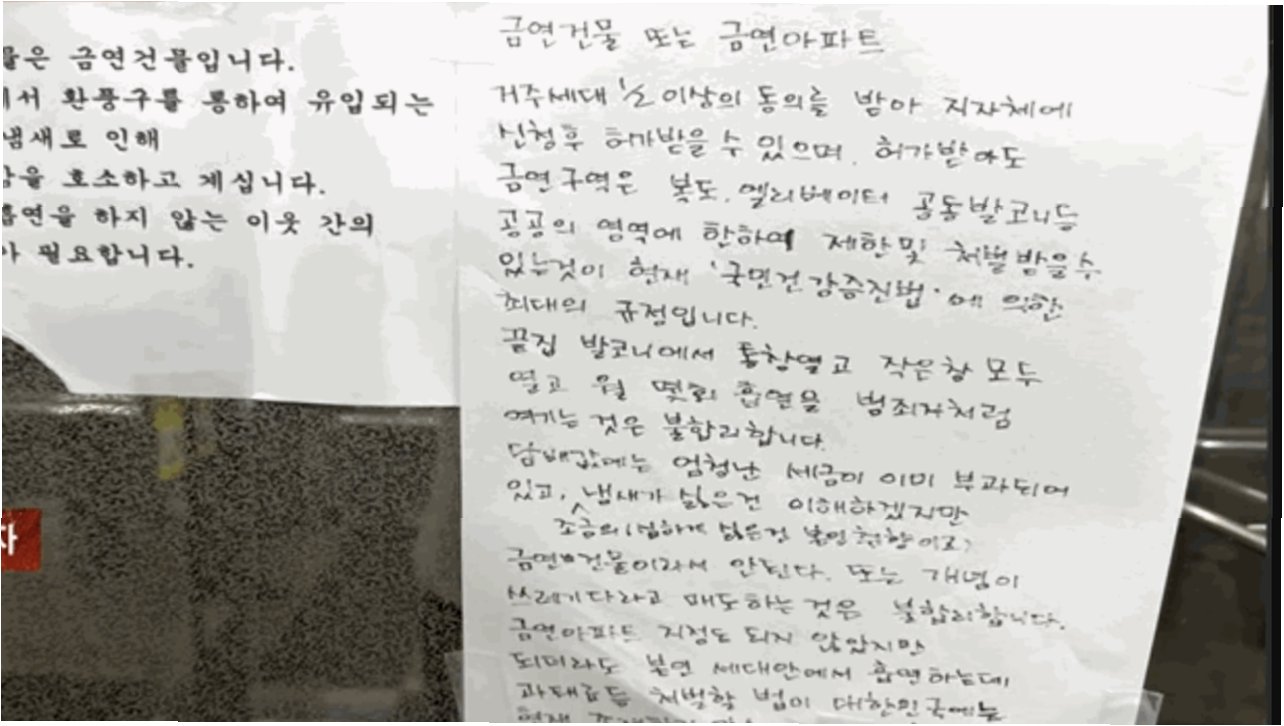 은 금연건물입니다.
서 환풍구를 통하여 유입되는
냄새로 인해
을 호소하고 계십니다.
흡연을 하지 않는 이웃 간의
필요합니다.
자
금연건물 또는 금연아파트
거주세대 ½ 이상의 동의를 받아 지자체에
신청후 허가받을 수 있으며, 허가받아도
금연구역은 복도, 엘리베이터 공동발코니등
공공의 영역에 한하여 제한및 처벌받을수
있는것이 현재 '국민건강증진법'에 의한
최대의 규정입니다.
끝집 발코니에서 통창열고 작은창 모두
열고 월 몇회 흡연을 범죄자처럼
여기는 것은 불합리합니다.
담배값에는 엄청난 세금이 이미 부과되어
있고, 냄새가 싫은건 이해하겠지만
싫은건 본인취향이고)
금연건물이라서 안된다. 또는 개념이
쓰레기다라고 매도하는 것은 불합리합니다.
금연아파트 지정도 되지 않았지만
되더라도 본인 세대안에서 흡연하는데
과태료등 처벌할 법이 대한민국에는
현재